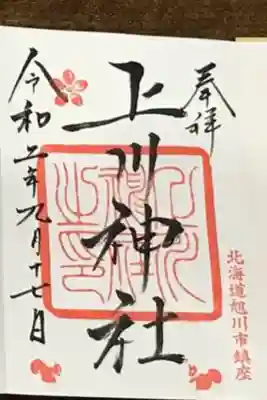 奉拝
上川神社
北海道旭川市鎮座
令和二年九月十七日